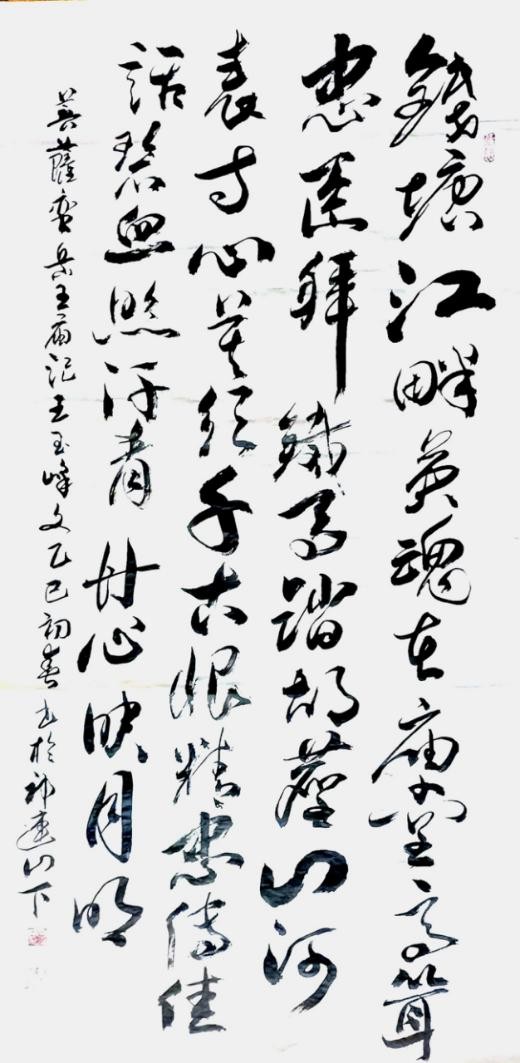 錢塘江畔英魂在庙堂高耸
忠臣拜鐵馬踏胡塵山河
表寸心莫须千古恨精忠傳佳
話碧血照汗青丹心映月明
菩薩蛮岳王庙記王玉峰文乙巳初春书於祁連山下